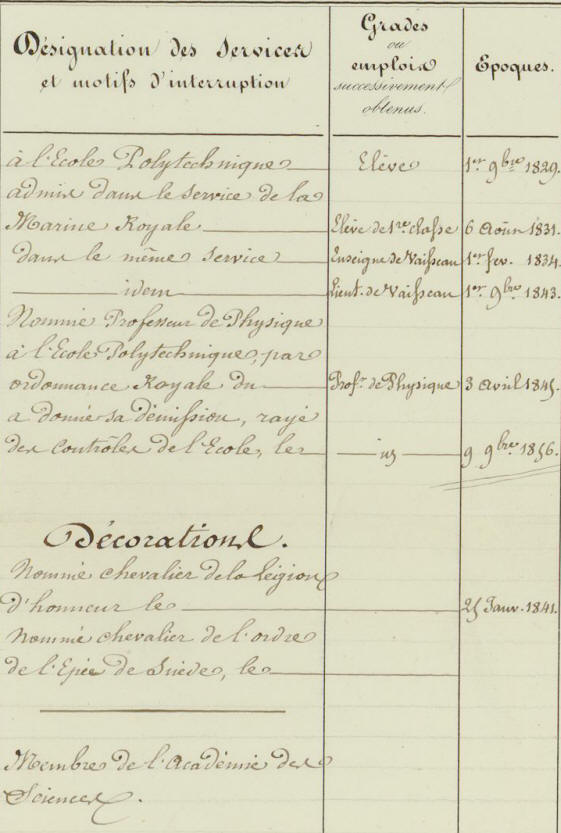 Désignation des Services
et motifs d'interruption
Grades
ou
emplois
successivement
obtenus.
Epoques.
à l'Ecole Polytechnique Elève 1er 9bre 1829.
admis dans le service de la
Marine Royale Elève de 1re classe 6 Août 1831.
dans le même service Enseigne de Vaisseau 1er fev. 1834
idem Lieut. de Vaisseau 1er 9bre 1843.
Nommé Professeur de Physique
à l'Ecole Polytechnique, par
ordonnance Royale du Profr. de Physique 3 avril 1845.
a donné sa démission, rayé
des Contrôles de l'Ecole, le 9 9bre 1856.
Décorations.
Nommé chevalier de la Légion
d'honneur le 25 Janv. 1841.
Nommé chevalier de l'ordre
de l'Epée de Suède, le
Membre de l'Académie des
Sciences.